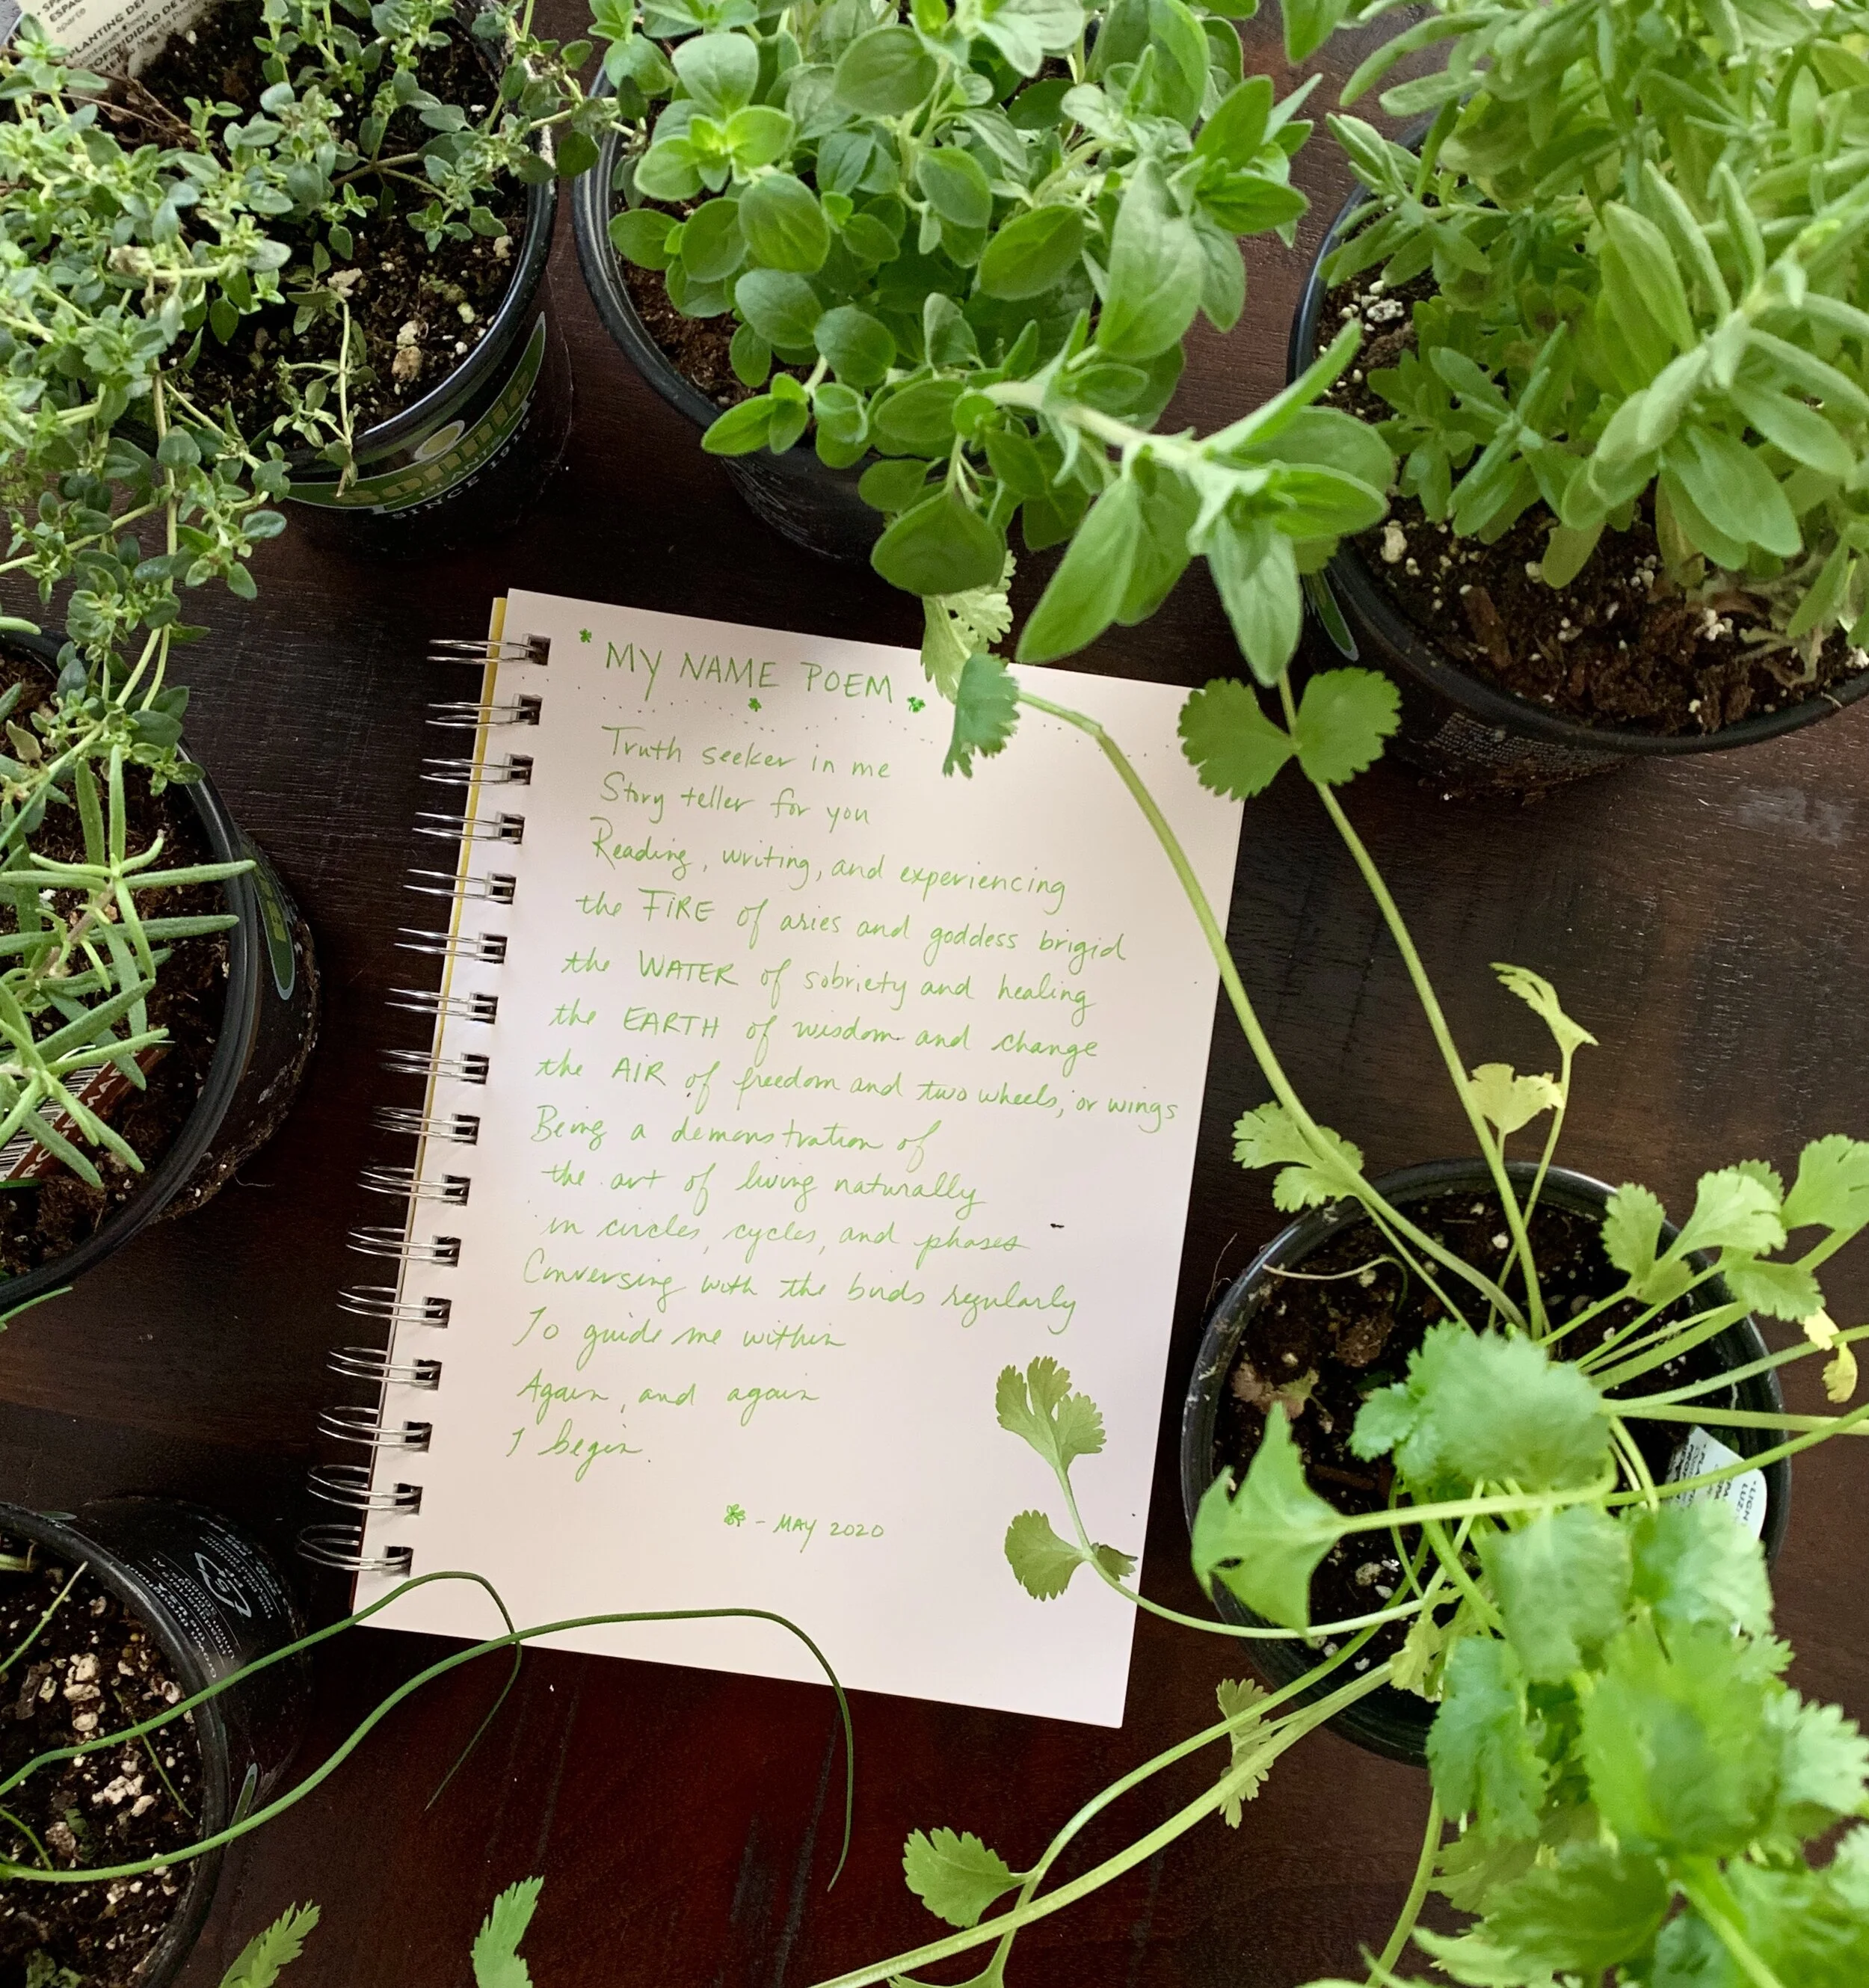 SP
ESPAC
aparte
PLANTING DE
PROFUNDIDAD DE
Bonnie
PLANTS
SINCE 1918
MY NAME POEM
Truth seeker in me
Story teller for you
Reading, writing, and experiencing
the FIRE of aries and goddess brigid
the WATER of sobriety and healing
the EARTH of wisdom and change
the AIR of freedom and two wheels, or wings
Being a demonstration of
the art of living naturally
in circles, cycles, and phases
Conversing with the birds regularly
To guide me within
Again, and again
I begin.
- MAY 2020